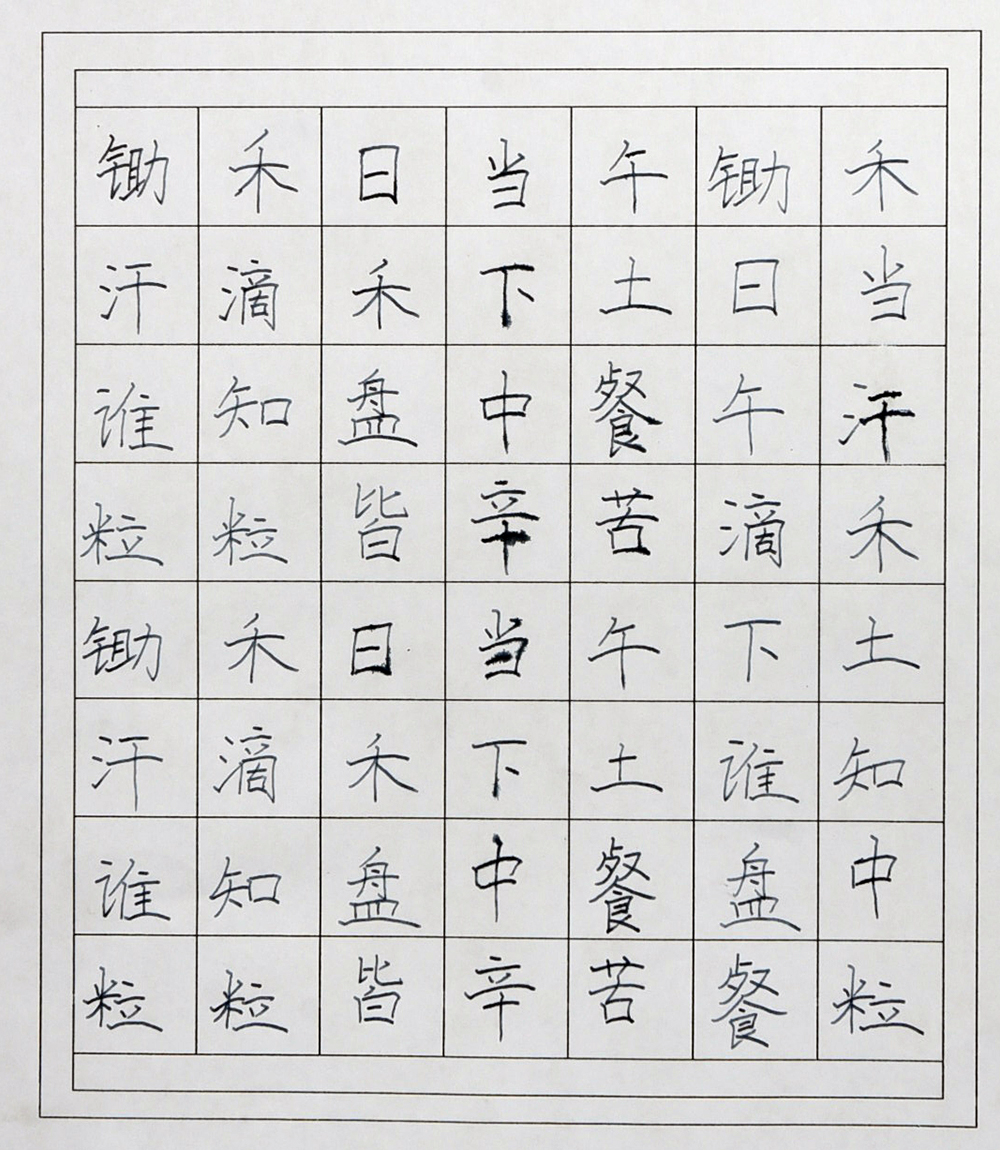 锄禾日当午锄禾
汗滴禾下土日当
谁知盘中餐午汗
粒粒皆辛苦滴禾
锄禾日当午下土
汗滴禾下土谁知
谁知盘中餐盘中
粒粒皆辛苦餐粒